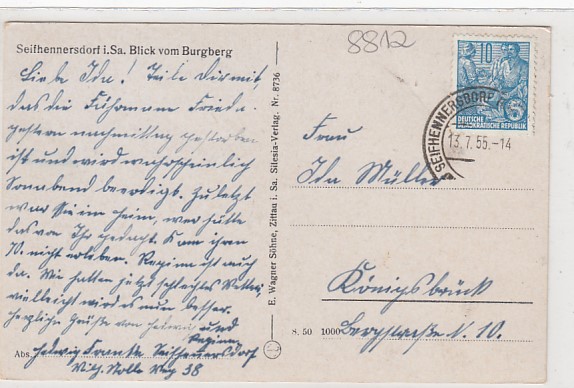 Seifhennersdorf i.Sa. Blick vom Burgberg
8812
Liebe Ida! Teile Dir mit,
das die Fuhrmann Frieda
gestern nachmittag gestorben
ist und wird wahrscheinlich
Sonnabend beerdigt. Zuletzt
war sie im Heim, wer hätte
das von Ihr gedacht. Kam ihren
70. nicht erleben. Regina ist auch
da. Wir hatten jetzt schlechtes Wetter,
vielleicht wird es nun besser.
Herzliche Grüße von Hedwig und
Regina
Abs. Hedwig Franke Seifhennersdorf
Wilh. Stolle Weg 38
E. Wagner Söhne, Zittau i. Sa. Silesia-Verlag. Nr. 8736
10
DEUTSCHE
DEMOKRATISCHE REPUBLIK
SEIFHENNERSDORF
13.7.55.-14
Frau
Ida Müller
Königsbrück
S. 50 1000 Bergstraße N. 10.